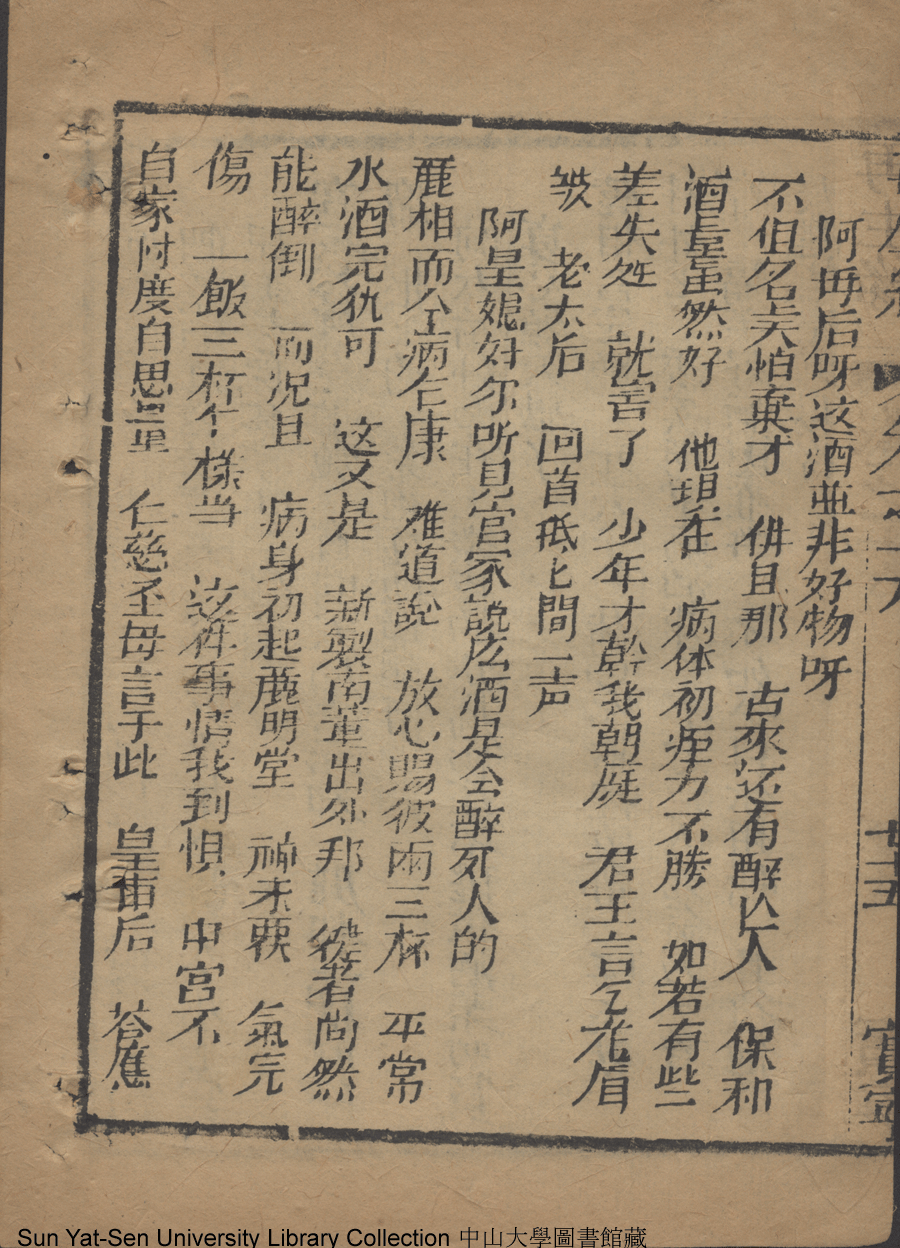 阿母后呀这酒並非好物呀
不但名芙怕棄才 俱且那 古來还有醉亾人 保和
酒量虽然好 他現在 病体初痊力不勝 如若有些
差失処 就害了 少年才幹我朝廷 君王言乞龙眉
皱 老太后 回首低匕間一声
阿皇媳好尔听見官家説広酒是会醉死人的
鹿相而今病乍康 难道説 放心賜彼兩三杯 平常
水酒完犹可 这又是 新製南董出外邦 健者尚然
能醉倒 而况且 病身初起鹿明堂 神未 氣完
傷 一飯三杯乍樣当 这件事情我到惧 中宮不
自家忖度自思量 仁慈圣母言于此 皇甫后 荅應
七十五 寶寧
Sun Yat-Sen University Library Collection 中山大學圖書館藏